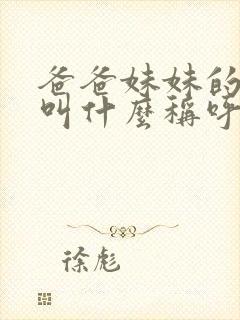 爸爸妹妹的
叫什麼稱呼
徐彪